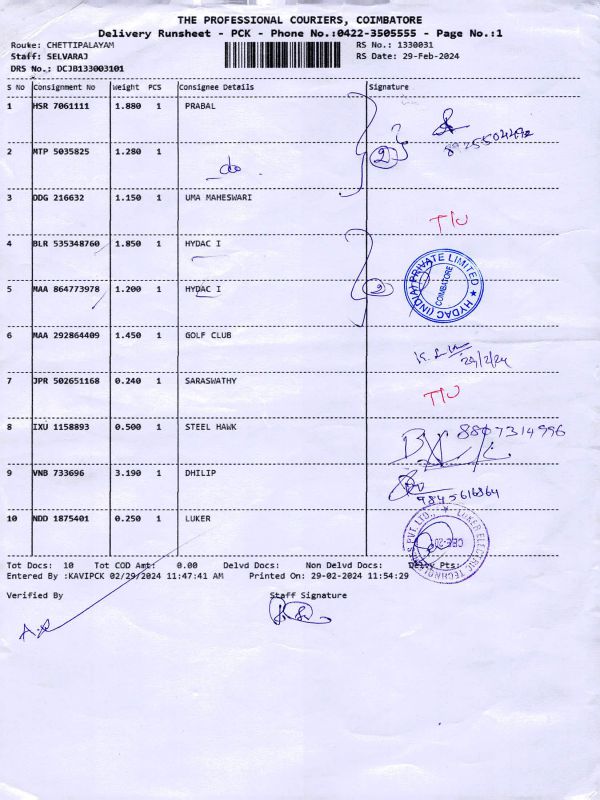 THE PROFESSIONAL COURIERS, COIMBATORE
Delivery Runsheet - PCK - Phone No.:0422-3505555 - Page No.:1
Route: CHETTIPALAYAM
RS No.: 1330031
Staff: SELVARAJ
RS Date: 29-Feb-2024
DRS No.: DCJB133003101
S No Consignment No Weight PCS Consignee Details Signature
1 HSR 7061111 1.880 1 PRABAL
2 MTP 5035825 1.280 1 do 2
3 DDG 216632 1.150 1 UMA MAHESWARI T/U
4 BLR 535348760 1.850 1 HYDAC I
HYDAC (INDIA) PRIVATE LIMITED ★ COIMBATORE
5 MAA 864773978 1.200 1 HYDAC I 2
6 MAA 292864409 1.450 1 GOLF CLUB
29/2/24
7 JPR 502651168 0.240 1 SARASWATHY T/U
8 IXU 1158893 0.500 1 STEEL HAWK 8807314996
9 VNB 733696 3.190 1 DHILIP
10 NDD 1875401 0.250 1 LUKER
LUKER ELECTRIC PVT. LTD.
Tot Docs: 10 Tot COD Amt: 0.00 Delvd Docs: Non Delvd Docs: Delvy Pts:
Entered By :KAVIPCK 02/29/2024 11:47:41 AM Printed On: 29-02-2024 11:54:29
Verified By Staff Signature